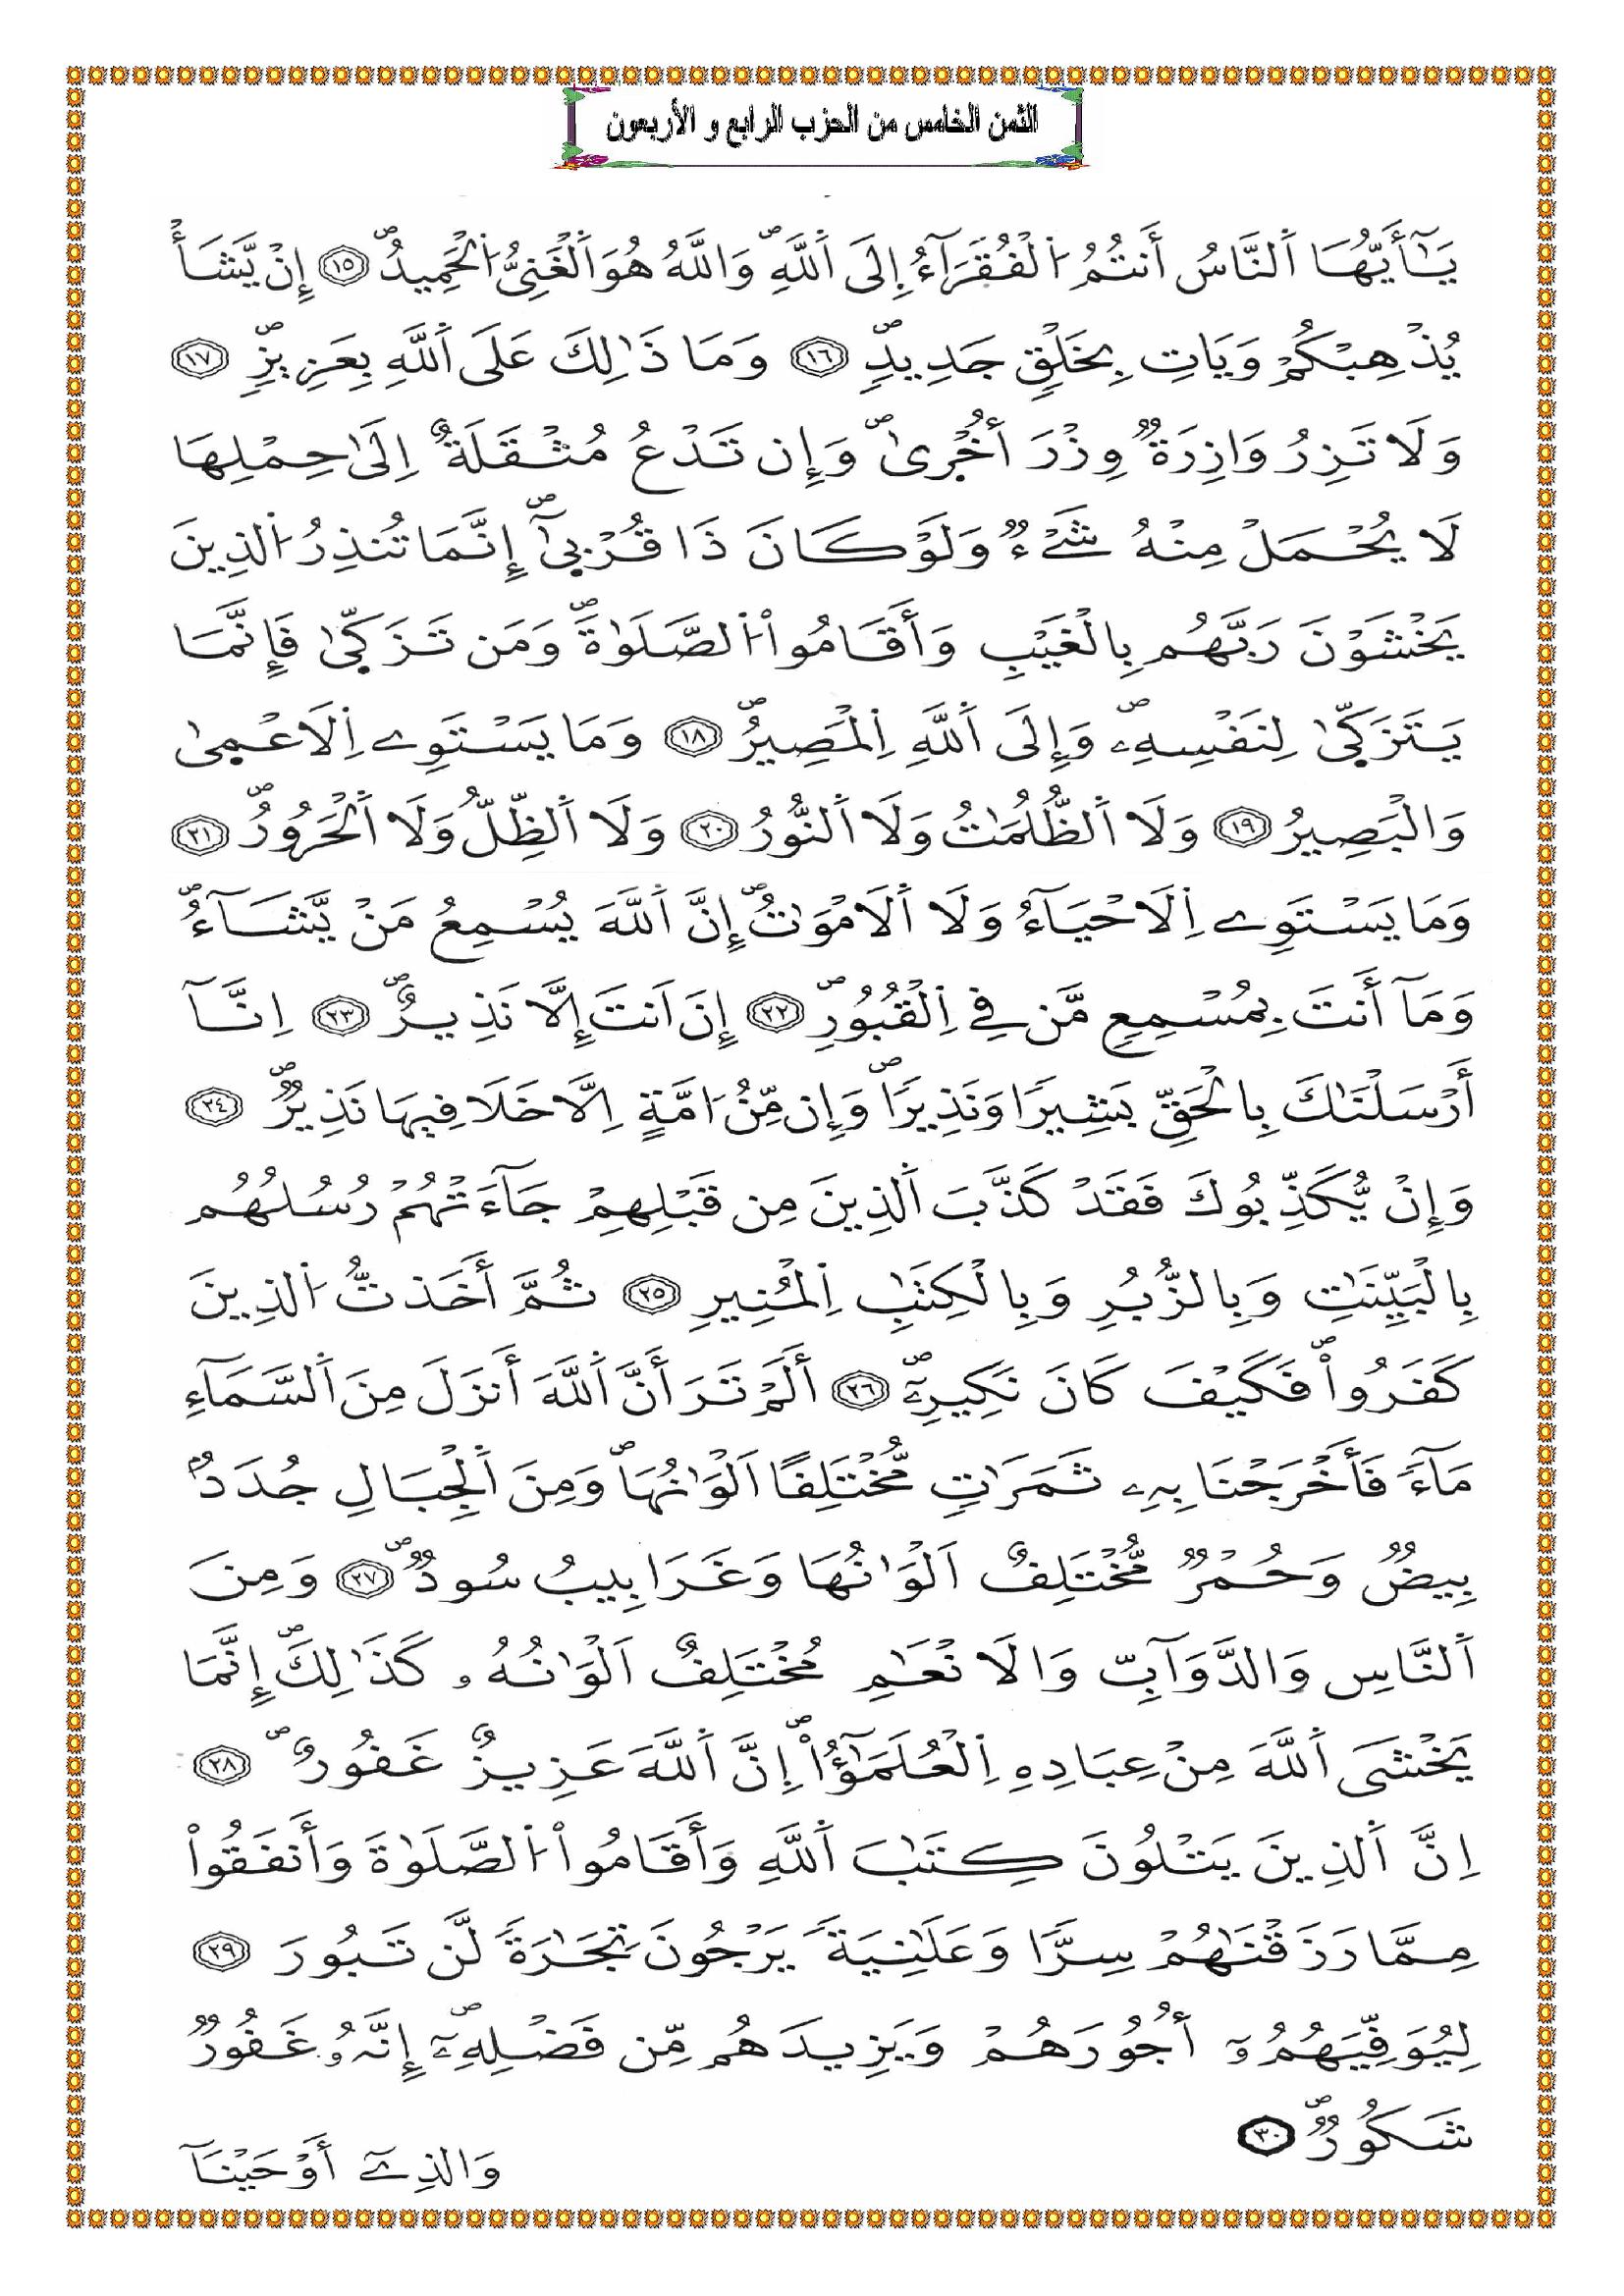 الثمن الخامس من الحزب الرابع و الأربعون
يَٰٓأَيُّهَا اَ۬لنَّاسُ أَنتُمُ اُ۬لْفُقَرَآءُ إِلَى اَ۬للَّهِۖ وَاللَّهُ هُوَ اَ۬لْغَنِيُّ اُ۬لْحَمِيدُۖ ١٥ إِنْ يَّشَأْ
يُذْهِبْكُمْ وَيَاتِ بِخَلْقٖ جَدِيدٖۖ ١٦ وَمَا ذَٰلِكَ عَلَى اَ۬للَّهِ بِعَزِيزٖۖ ١٧
وَلَا تَزِرُ وَازِرَةٞ وِزْرَ أُخْر۪ىٰۖ وَإِن تَدْعُ مُثْقَلَةٌ اِلَىٰ حِمْلِهَا
لَا يُحْمَلْ مِنْهُ شَےْءٞ وَلَوْ كَانَ ذَا قُرْب۪ىٰٓۖ إِنَّمَا تُنذِرُ اُ۬لذِينَ
يَخْشَوْنَ رَبَّهُم بِالْغَيْبِ وَأَقَامُواْ اُ۬لصَّلَوٰةَۖ وَمَن تَزَكّ۪ىٰ فَإِنَّمَا
يَتَزَكّ۪ىٰ لِنَفْسِهِۦۖ وَإِلَى اَ۬للَّهِ اِ۬لْمَصِيرُۖ ١٨ وَمَا يَسْتَوِے اِ۬لَاعْم۪ىٰ
وَالْبَصِيرُ ١٩ وَلَا اَ۬لظُّلُمَٰتُ وَلَا اَ۬لنُّورُ ٢٠ وَلَا اَ۬لظِّلُّ وَلَا اَ۬لْحَرُورُۖ ٢١
وَمَا يَسْتَوِے اِ۬لَاحْيَآءُ وَلَا اَ۬لَامْوَٰتُۖ إِنَّ اَ۬للَّهَ يُسْمِعُ مَنْ يَّشَآءُۖ
وَمَآ أَنتَ بِمُسْمِعٖ مَّن فِي اِ۬لْقُبُورِۖ ٢٢ إِنَ اَنتَ إِلَّا نَذِيرٌۖ ٢٣ اِنَّآ
أَرْسَلْنَٰكَ بِالْحَقِّ بَشِيراٗ وَنَذِيراٗۖ وَإِن مِّنُ ا۟مَّةٍ اِلَّا خَلَا فِيهَا نَذِيرٞۖ ٢٤
وَإِنْ يُّكَذِّبُوكَ فَقَدْ كَذَّبَ اَ۬لذِينَ مِن قَبْلِهِمْ جَآءَتْهُمْ رُسُلُهُم
بِالْبَيِّنَٰتِ وَبِالزُّبُرِ وَبِالْكِتَٰبِ اِ۬لْمُنِيرِ ٢٥ ثُمَّ أَخَذتُّ اُ۬لذِينَ
كَفَرُواْۖ فَكَيْفَ كَانَ نَكِيرِۦٓۖ ٢٦ أَلَمْ تَرَ أَنَّ اَ۬للَّهَ أَنزَلَ مِنَ اَ۬لسَّمَآءِ
مَآءٗ فَأَخْرَجْنَا بِهِۦ ثَمَرَٰتٖ مُّخْتَلِفاً اَلْوَٰنُهَاۖ وَمِنَ اَ۬لْجِبَالِ جُدَدُۢ
بِيضٞ وَحُمْرٞ مُّخْتَلِفٌ اَلْوَٰنُهَا وَغَرَابِيبُ سُودٞۖ ٢٧ وَمِنَ
اَ۬لنَّاسِ وَالدَّوَآبِّ وَالَانْعَٰمِ مُخْتَلِفٌ اَلْوَٰنُهُۥ كَذَٰلِكَۖ إِنَّمَا
يَخْشَى اَ۬للَّهَ مِنْ عِبَادِهِ اِ۬لْعُلَمَٰٓؤُاْۖ إِنَّ اَ۬للَّهَ عَزِيزٌ غَفُورٌۖ ٢٨
اِنَّ اَ۬لذِينَ يَتْلُونَ كِتَٰبَ اَ۬للَّهِ وَأَقَامُواْ اُ۬لصَّلَوٰةَ وَأَنفَقُواْ
مِمَّا رَزَقْنَٰهُمْ سِرّاٗ وَعَلَٰنِيَةٗ يَرْجُونَ تِجَٰرَةٗ لَّن تَبُورَ ٢٩
لِيُوَفِّيَهُمُۥٓ أُجُورَهُمْ وَيَزِيدَهُم مِّن فَضْلِهِۦٓۖ إِنَّهُۥ غَفُورٞ
شَكُورٞۖ ٣٠
وَالذِےٓ أَوْحَيْنَآ